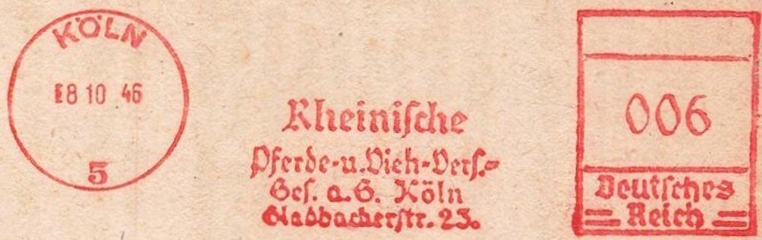 KÖLN
8 10 46
5
Rheinische
Pferde-u.Vieh-Vers.=
Ges. a.G. Köln
Gladbacherstr. 23.
006
Deutsches
Reich